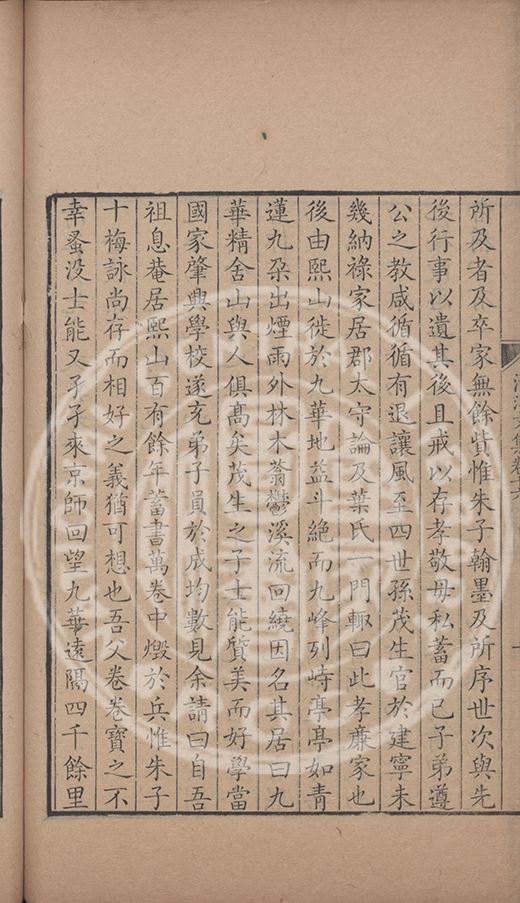 所及者及卒家無餘貲惟朱子翰墨及所序世次與先
後行事以遺其後且戒以存孝敬毋私蓄而已子弟遵
公之教咸循循有退讓風至四世孫茂生官於建寧未
幾納祿家居郡太守論及葉氏一門輙曰此孝亷家也
後由熙山徙於九華地益斗絕而九峰列峙亭亭如青
蓮九朶出煙雨外林木蓊鬱溪流回繞因名其居曰九
華精舍山與人俱髙矣茂生之子士能質美而好學當
國家肇興學校遂充弟子員於成均數見余請曰自吾
祖息菴居熙山百有餘年蓄書萬卷中燬於兵惟朱子
十梅詠尚存而相好之義猶可想也吾父卷卷寶之不
幸蚤没士能又孑孑來京師回望九華遠隔四千餘里